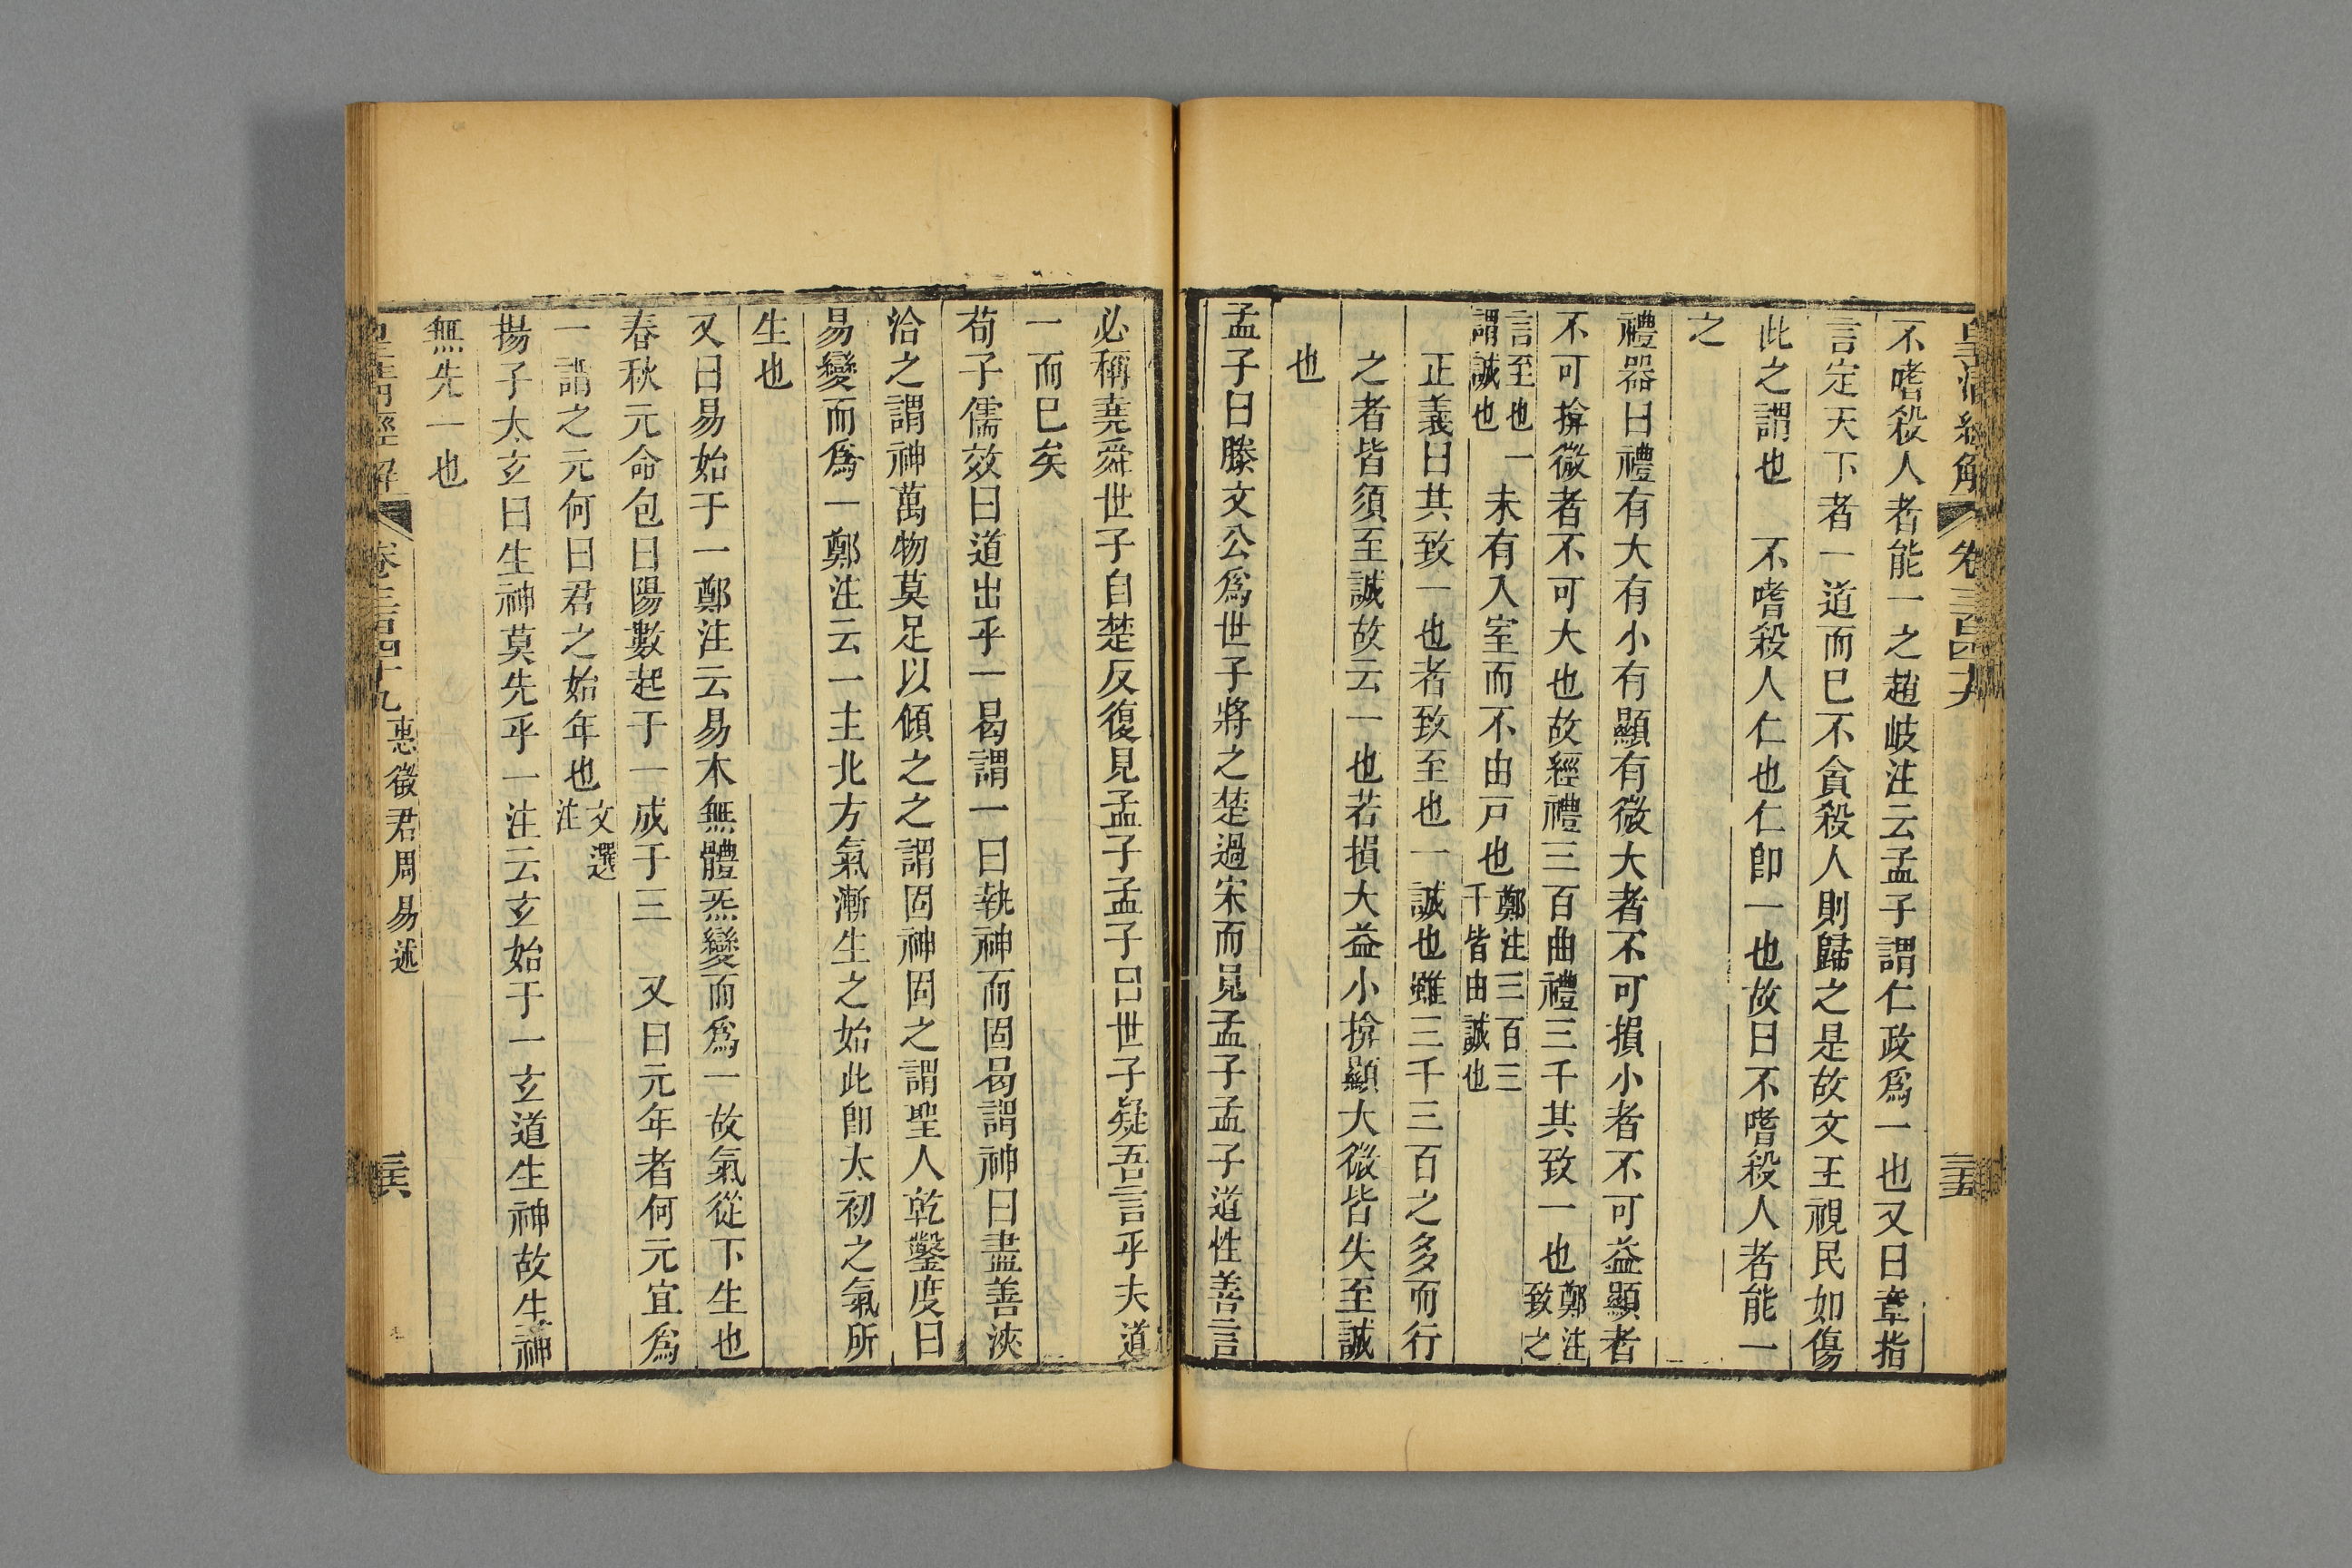 皇清經解 卷三百四十九 三五
不嗜殺人者能一之趙岐注云孟子謂仁政爲一也又曰章指
言定天下者一道而已不貪殺人則歸之是故文王視民如傷
此之謂也 不嗜殺人仁也仁卽一也故曰不嗜殺人者能一
之
禮器曰禮有大有小有顯有微大者不可損小者不可益顯者
不可揜微者不可大也故經禮三百曲禮三千其致一也鄭注致之
言至也一謂誠也 未有入室而不由戸也鄭注三百三千皆由誠也
正義曰其致一也者致至也一誠也雖三千三百之多而行
之者皆須至誠故云一也若損大益小揜顯大微皆失至誠
也
孟子曰滕文公爲世子將之楚過宋而見孟子孟子道性善言
必稱堯舜世子自楚反復見孟子孟子曰世子疑吾言乎夫道
一而已矣
荀子儒效曰道出乎一曷謂一曰執神而固曷謂神曰盡善浹
洽之謂神萬物莫足以傾之之謂固神固之謂聖人乾鑿度曰
易變而爲一鄭注云一主北方氣漸生之始此卽太初之氣所
生也
又曰易始于一鄭注云易木無體炁變而爲一故氣從下生也
春秋元命包曰陽數起于一成于三 又曰元年者何元宜爲
一謂之元何曰君之始年也文選注
揚子太玄曰生神莫先乎一注云玄始于一玄道生神故生神
無先一也
皇清經解 卷三百四十九 惠徵君周易述 三六